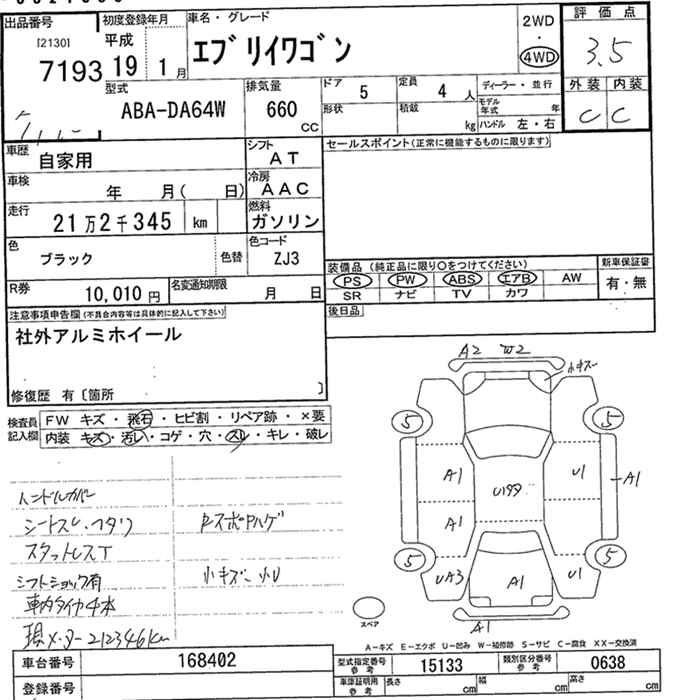 出品番号 初度登録年月 車名・グレード 2WD 評価点
[2130] 平成 エブリイワゴン ・ 3.5
7193 19 1月 4WD
型式 排気量 ドア 5 定員 4人 ディーラー・並行 外装 内装
ABA-DA64W 660 CC 形状 積載 kg モデル年式 年 C C
ハンドル 左・右
車歴 自家用 シフト AT セールスポイント(正常に機能するものに限ります)
車検 年 月( 日) 冷房 AAC
走行 21万2千345 km 燃料 ガソリン
色 ブラック 色替 色コード ZJ3
装備品 (純正品に限り○をつけてください) 新車保証書
PS PW ABS エアB AW 有・無
SR ナビ TV カワ
R券 10,010円 名変通知期限 月 日
後日品
注意事項申告欄 (不具合内容等は具体的に記入して下さい)
社外アルミホイール
修復歴 有〔箇所 〕
検査員記入欄 FW キズ・飛石・ヒビ割・リペア跡・×要
内装 キズ・汚レ・コゲ・穴・スレ・キレ・破レ
A2 W2
小キズ
5 5
A1 U1 A1
U199
A1
5 5
UA3 A1 U1
A1
スペア
ハンドルカバー
シートスレ.ヘタリ
Rスポイラハゲ
スタットレスT
シフトショック有 小キズ 小U
車内タイヤ4本
現メーター212346km
A−キズ E−エクボ U−凹み W−補修跡 S−サビ C−腐食 XX−交換済
車台番号 168402 型式指定番号参考 15133 類別区分番号参考 0638
登録番号 車庫証明用参考 長さ cm 幅 cm 高さ cm